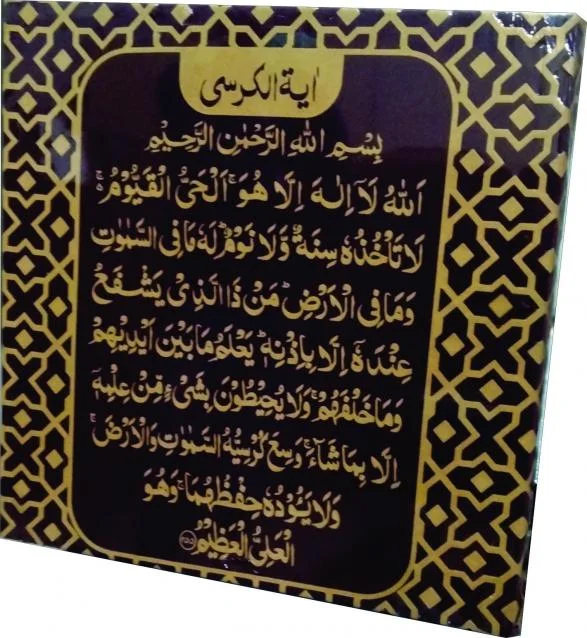 اٰية الكرسی
بِسْمِ اللهِ الرَّحْمٰنِ الرَّحِيْمِ
اَللهُ لَآ اِلٰهَ اِلَّا هُوَ ۚ اَلْحَیُّ الْقَيُّوْمُ ۚ
لَا تَأْخُذُهٗ سِنَةٌ وَّلَا نَوْمٌ ؕ لَهٗ مَا فِی السَّمٰوٰتِ
وَمَا فِی الْاَرْضِ ؕ مَنْ ذَا الَّذِیْ يَشْفَعُ
عِنْدَهٗٓ اِلَّا بِاِذْنِهٖ ؕ يَعْلَمُ مَا بَيْنَ اَيْدِيْهِمْ
وَمَا خَلْفَهُمْ ۚ وَلَا يُحِيْطُوْنَ بِشَیْءٍ مِّنْ عِلْمِهٖٓ
اِلَّا بِمَا شَآءَ ۚ وَسِعَ كُرْسِيُّهُ السَّمٰوٰتِ وَالْاَرْضَ ۚ
وَلَا يَئُوْدُهٗ حِفْظُهُمَا ۚ وَهُوَ
الْعَلِیُّ الْعَظِيْمُ ﴿۲۵۵﴾